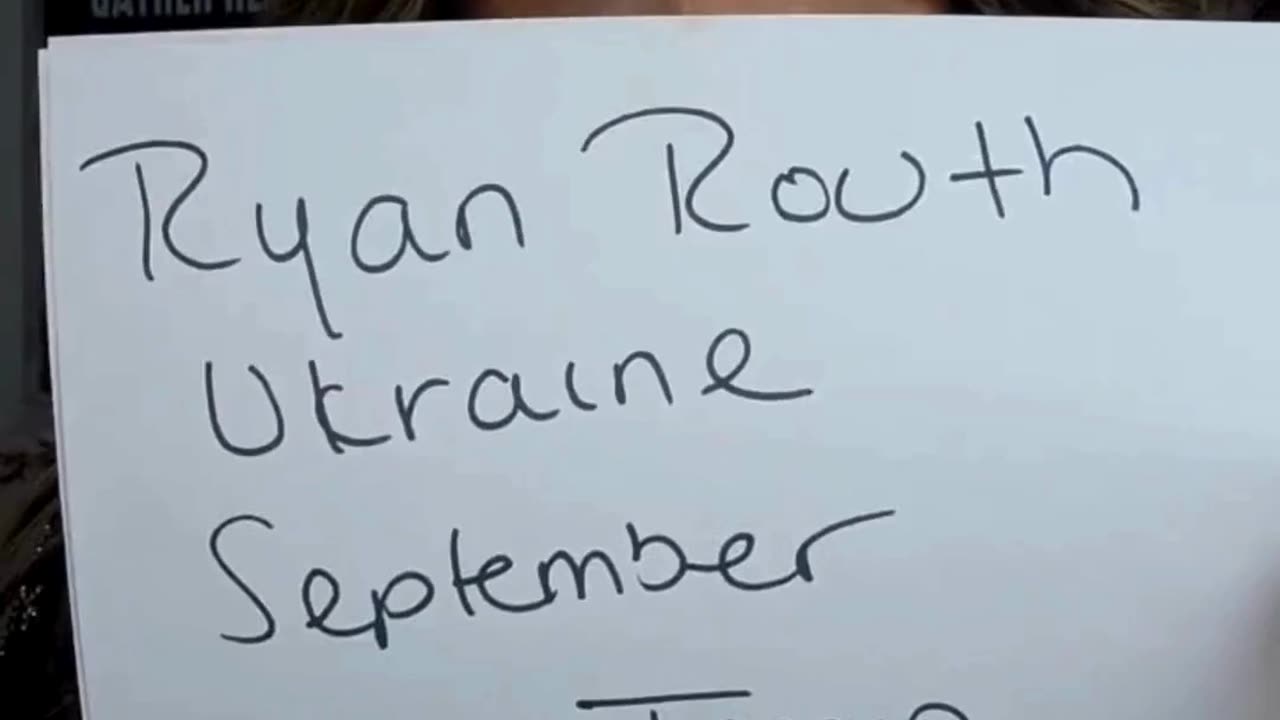 GATHER HE
Ryan Routh
Ukraine
September